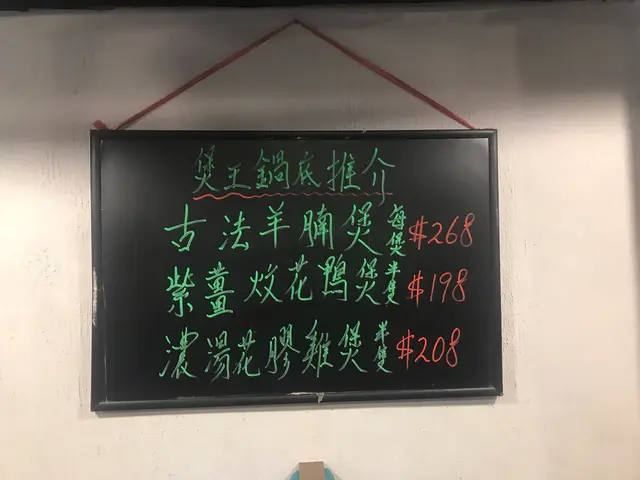 煲王鍋底推介
古法羊腩煲 每煲 $268
紫薑炆花鴨煲 半隻 $198
濃湯花膠雞煲 半隻 $208